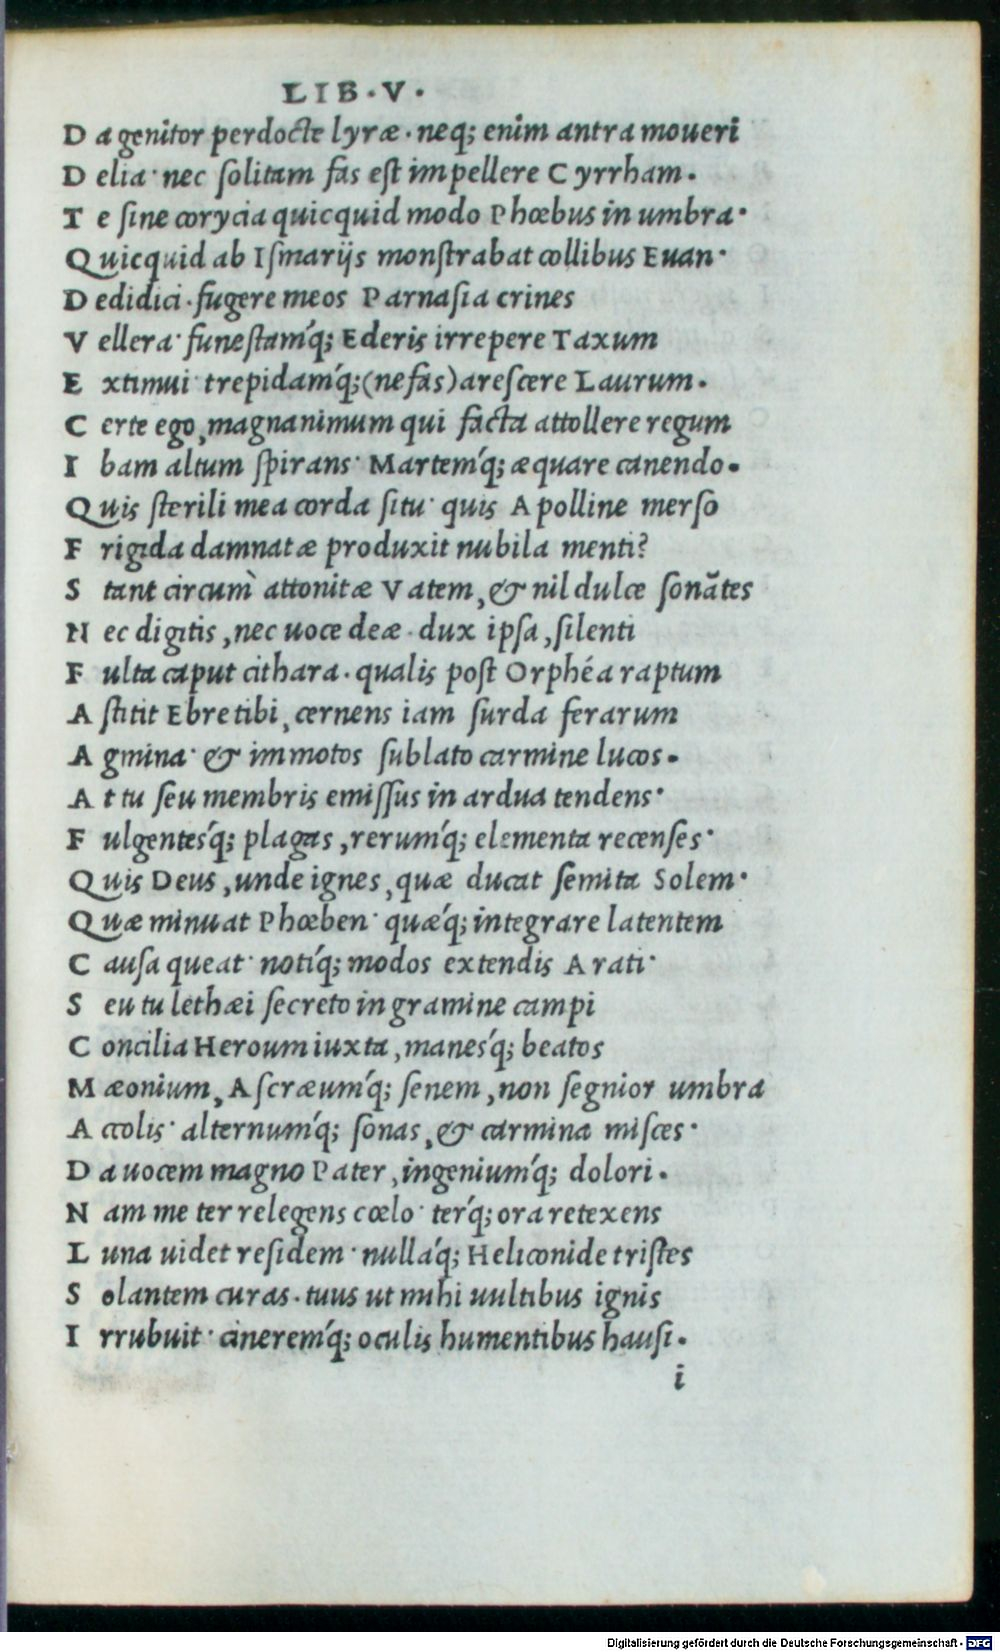 LIB·V·
D a genitor perdocte lyræ· neq; enim antra moueri
D elia· nec solitam fas est impellere Cyrrham·
T e sine corycia quicquid modo Phœbus in umbra·
Q uicquid ab Ismarijs monstrabat collibus Euan·
D edidici· fugere meos Parnasia crines
V ellera· funestamq́; Ederis irrepere Taxum
E xtimui· trepidamq́;(nefas)arescere Laurum·
C erte ego, magnanimum qui facta attollere regum
I bam altum spirans· Martemq́; æquare canendo·
Q uis sterili mea corda situ· quis Apolline merso
F rigida damnatæ produxit nubila menti?
S tant circum̀ attonitæ Vatem, & nil dulce sonātes
N ec digitis, nec uoce deæ· dux ipsa, silenti
F ulta caput cithara· qualis post Orphéa raptum
A stitit Ebre tibi, cernens iam surda ferarum
A gmina· & immotos sublato carmine lucos·
A t tu seu membris emissus in ardua tendens·
F ulgentesq́; plagas, rerumq́; elementa recenses·
Q uis Deus, unde ignes, quæ ducat semita Solem·
Q uæ minuat Phœben· quæq́; integrare latentem
C ausa queat· notiq́; modos extendis Arati·
S eu tu lethæi secreto in gramine campi
C oncilia Heroum iuxta, manesq́; beatos
M æonium, Ascræumq́; senem, non segnior umbra
A ccolis· alternumq́; sonas, & carmina misces·
D a uocem magno Pater, ingeniumq́; dolori·
N am me ter relegens cœlo· terq́; ora retexens
L una uidet residem· nullaq́; Heliconide tristes
S olantem curas· tuus ut mihi uultibus ignis
I rrubuit· cineremq́; oculis humentibus hausi·
i
Digitalisierung gefördert durch die Deutsche Forschungsgemeinschaft - DFG